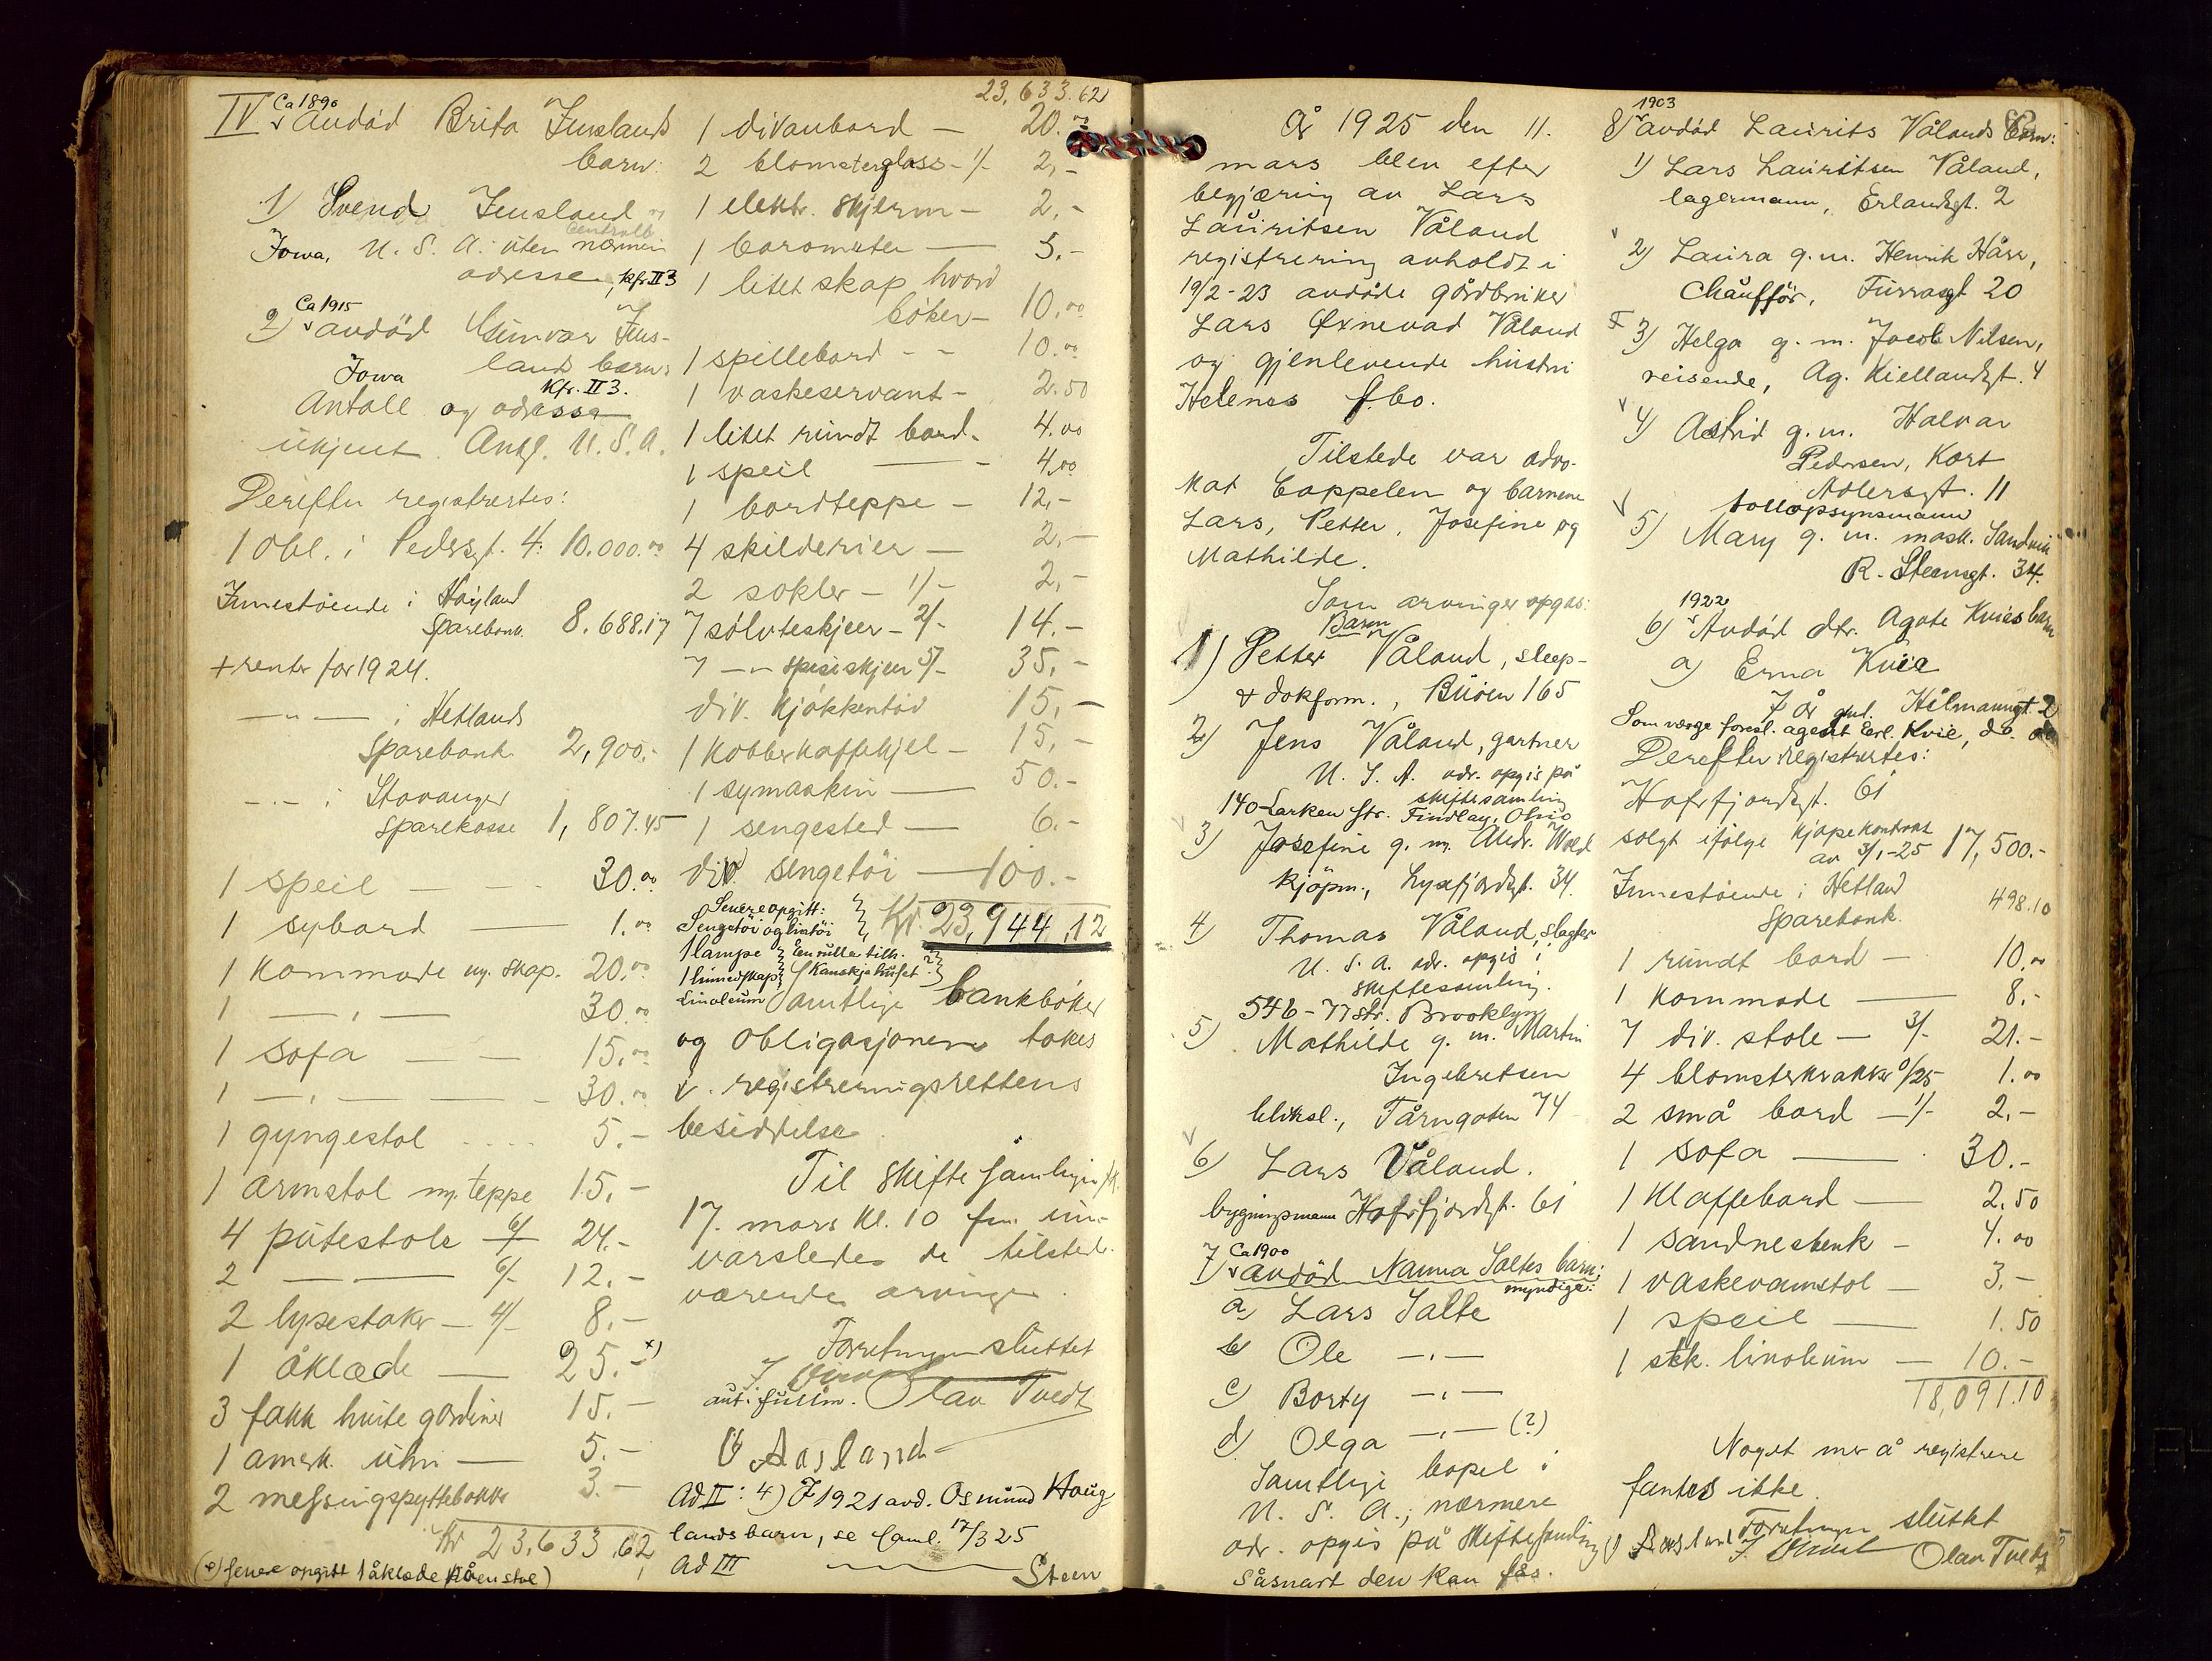 IV Ca 1890
avdöd Brita Jensland's
barn:
1) Svend Jensland
Centralb
Jowa, U. S. A. uten nærmere
adresse, kfr. II 3
Ca 1915
2) avdöd Gunvor Jens-
land's barn:
Jowa kfr. II 3.
Antall og adresse
ukjent. Antgl. U. S. A.
Derefter registrertes:
1 obl. i Pedersgt. 4: 10.000.00
Innestående i Høyland
Sparebank 8.688.17
+ renter for 1924.
— " — i Hetlands
Sparebank 2,900.-
— " — i Stavanger
Sparekasse 1,807.45
1 speil — 30.00
1 sybord — 1.00
1 kommode m. skap. 20.00
1 — " — 30.00
1 sofa — 15.00
1 — " — 30.00
1 gyngestol .... 5.-
1 armstol m. teppe 15.-
4 putestole 6/- 24.-
2 — 6/- 12.-
2 lysestaker — 4/- 8.-
1 åklæde — 25.- x)
3 fakk hvite gardiner 15.-
1 amerk. uhr — 5.-
2 messingspyttebakker 3.-
Kr 23,633,62
(x) senere opgitt 1 åklæde på en stol)
23,633.62
1 divanbord — 20.00
2 blomsterglass - 1/- 2,-
1 elektr. skjerm - 2,-
1 barometer — 5.-
1 litet skap hvori
bøker - 10.00
1 spillebord - - 10.00
1 vaskeservant - 2.50
1 litet rundt bord - 4.00
1 speil — 4.00
1 bordteppe - 12,-
4 skilderier - 2,-
2 sokler - 1/- 2,-
7 sølvteskjeer - 2/- 14.-
7 — " — spiseskjeer 5/- 35,-
div. kjøkkentøi 15,-
1 kobberkaffekjel - 15,-
1 symaskin — 50.-
1 sengested — 6.-
div. sengetöi — 100.-
Kr. 23,944,12
Senere opgitt:
Sengetöi og lintöi
1 lampe
1 linnedskap
Linoleum
En rulle tilh.
Kanskje huset ?
Samtlige bankbøker
og obligasjonen takes
i registreringsrettens
besiddelse.
Til skiftesamling
17. mars kl. 10 fm. inn-
varsledes de tilstede
værende arvinger.
Forretningen sluttet
aut. fullm. Olav Tvedt
O Aasland
Ad II: 4) I 1921 avd. Osmund Haug
lands barn, se saml. 17/3 25
Ad III — Steen
År 1925 den 11.
mars blev efter
begjæring av Lars
Lauritsen Våland
registrering avholdt i
19/2-23 avdøde gårdbruker
Lars Øxnevad Våland
og gjenlevende hustru
Helenes f.bo.
Tilstede var advo-
kat Cappelen og barnene
Lars, Petter, Josefine og
Mathilde.
Som arvinger opgas:
Barn
1) Petter Våland, sleep-
& dokform., Buøen 165
2) Jens Våland, gartner
U. S. A. adr. opgis på
skiftesamling
140 Larken Str. Findlay, Ohio
3) Josefine g. m. Andr. Wold
kjøpm., Lysefjordgt. 34.
4) Thomas Våland, slagter
U. S. A. adr. opgis i
skiftessamling.
546 - 77 str. Brooklyn
5) Mathilde g. m. Martin
Ingebretsen
blikksl., Tårngaten 74
6) Lars Våland.
bygningsmann Hafrsfjordgt. 61
7) Ca 1900
avdöd Nanna Saltes barn:
myndige:
a) Lars Salte
b) Ole — " —
c) Borty — " —
d) Olga — " — (?)
Samtlige bopel i
U. S. A.; nærmere
adr. opgis på skiftesamling
såsnart den kan fås.
8) 1903
avdöd Laurits Vålands barn:
1) Lars Lauritsen Våland,
lagermann, Erlandsgt. 2
2) Laura g. m. Henrik Hårr,
Chaufför, Furrasgt 20
3) Helga g. m. Jacob Nilsen,
reisende, Ag. Kiellandsgt. 4
4) Astrid g. m. Halvar
Pedersen, Kort
Adlersgt. 11
tollopsynsmann
5) Mary g. m. mask. Sandvik
R. Steensgt. 34.
1922
6) Avdöd dtr. Agate Kvies barn
a) Erna Kvie
7 år gml. Hålmanngt. 2
Som værge foresl. agent Erl. Kvie, do. do
Derefter registrertes:
Hafrsfjordgt. 61
solgt ifølge kjøpekontrakt
av 3/1-25 17,500.-
Innestående i Hetland
Sparebank. 498.10
1 rundt bord — 10.00
1 kommode — 8.-
7 div. stole — 3/- 21.-
4 blomsterkrakker 0/25 1.00
2 små bord — 1/- 2,-
1 sofa — 30.-
1 klaffebord — 2.50
1 sandnesbenk — 4.00
1 vaskevannstol — 3.-
1 speil — 1.50
1 stk. linoleum — 10.-
18,091.10
Noget mer å registrere
fantes ikke.
Forretningen sluttet
O Aasland Olav Tvedt